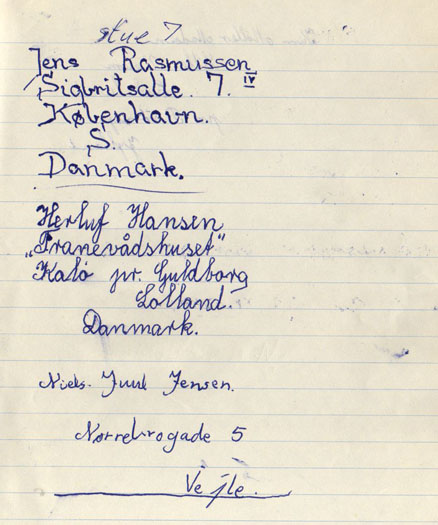 stue 7
Jens Rasmussen
Sigbritsalle. 7. IV
København.
S.
Danmark.
Herluf Hansen
"Tranevådshuset"
Kalø pr. Guldborg
Lolland.
Danmark.
Niels. Juul Jensen.
Nørrebrogade 5
Vejle.